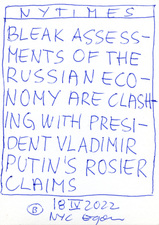 NYTIMES
BLEAK ASSESS-
MENTS OF THE
RUSSIAN ECO-
NOMY ARE CLASH-
ING WITH PRESI-
DENT VLADIMIR
PUTIN'S ROSIER
CLAIMS
B 18 IV 2022
NYC